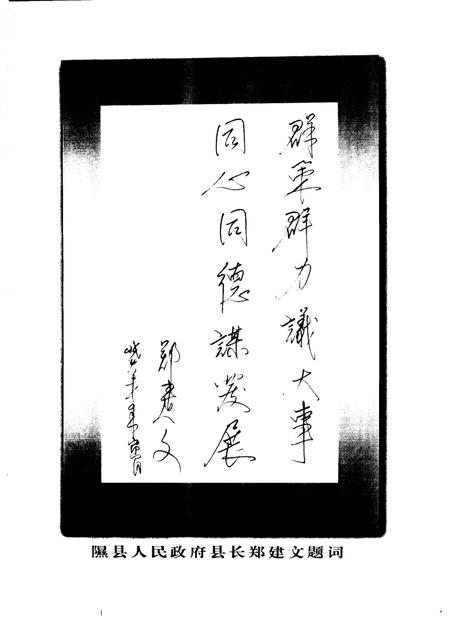 群策群力議大事
同心同德謀發展
郑建文
隰县人民政府县长郑建文题词